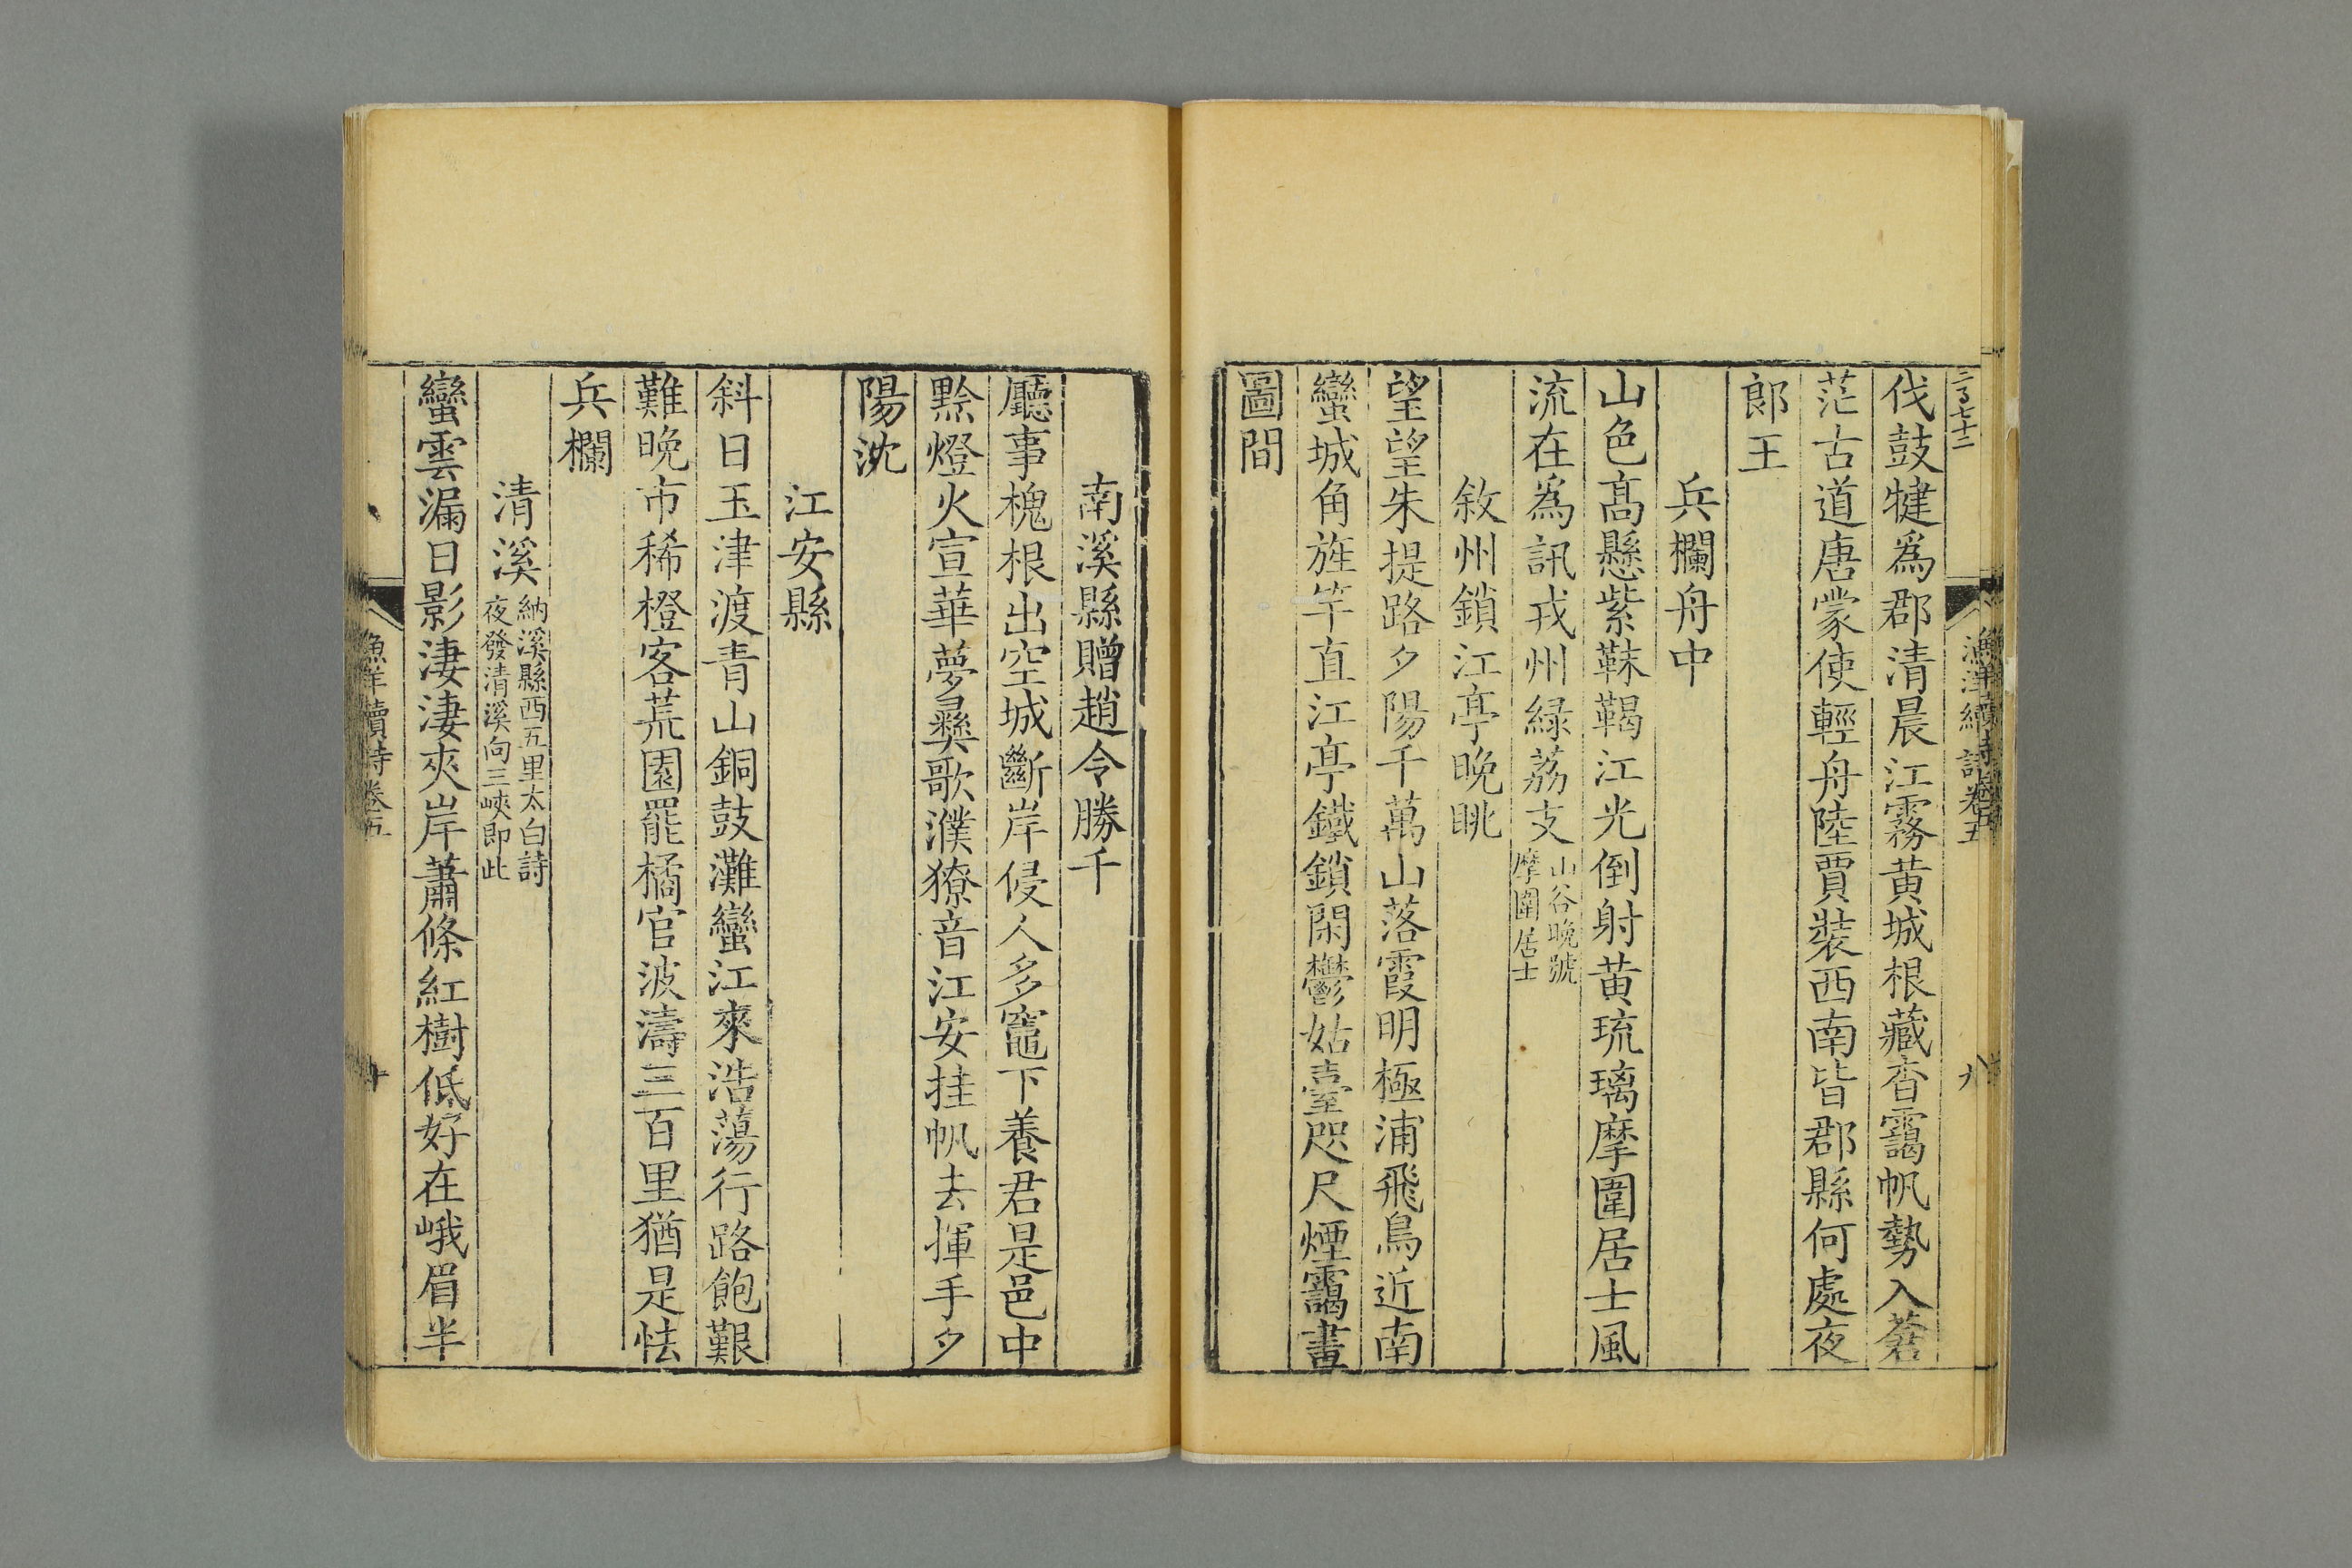 伐鼓犍爲郡清晨江霧黄城根藏杳靄帆勢入蒼
茫古道唐蒙使輕舟陸賈裝西南皆郡縣何處夜
郎王
兵欄舟中
山色高懸紫靺鞨江光倒射黄琉璃摩圍居士風
流在爲訊戎州緑荔支
山谷晚號
摩圍居士
敘州鎖江亭晚眺
望望朱提路夕陽千萬山落霞明極浦飛鳥近南
蠻城角旌竿直江亭鐵鎖閑鬱姑臺咫尺煙靄畫
圖間
南溪縣贈趙令勝千
廳事槐根出空城斷岸侵人多竃下養君是邑中
黔燈火宣華夢彞歌濮獠音江安挂帆去揮手夕
陽沈
江安縣
斜日玉津渡青山銅鼓灘蠻江來浩蕩行路飽艱
難晚市稀橙客荒園罷橘官波濤三百里猶是怯
兵欄
清溪
納溪縣西五里太白詩
夜發清溪向三峽即此
蠻雲漏日影淒淒夾岸蕭條紅樹低好在峨眉半
漁洋續詩卷五
十